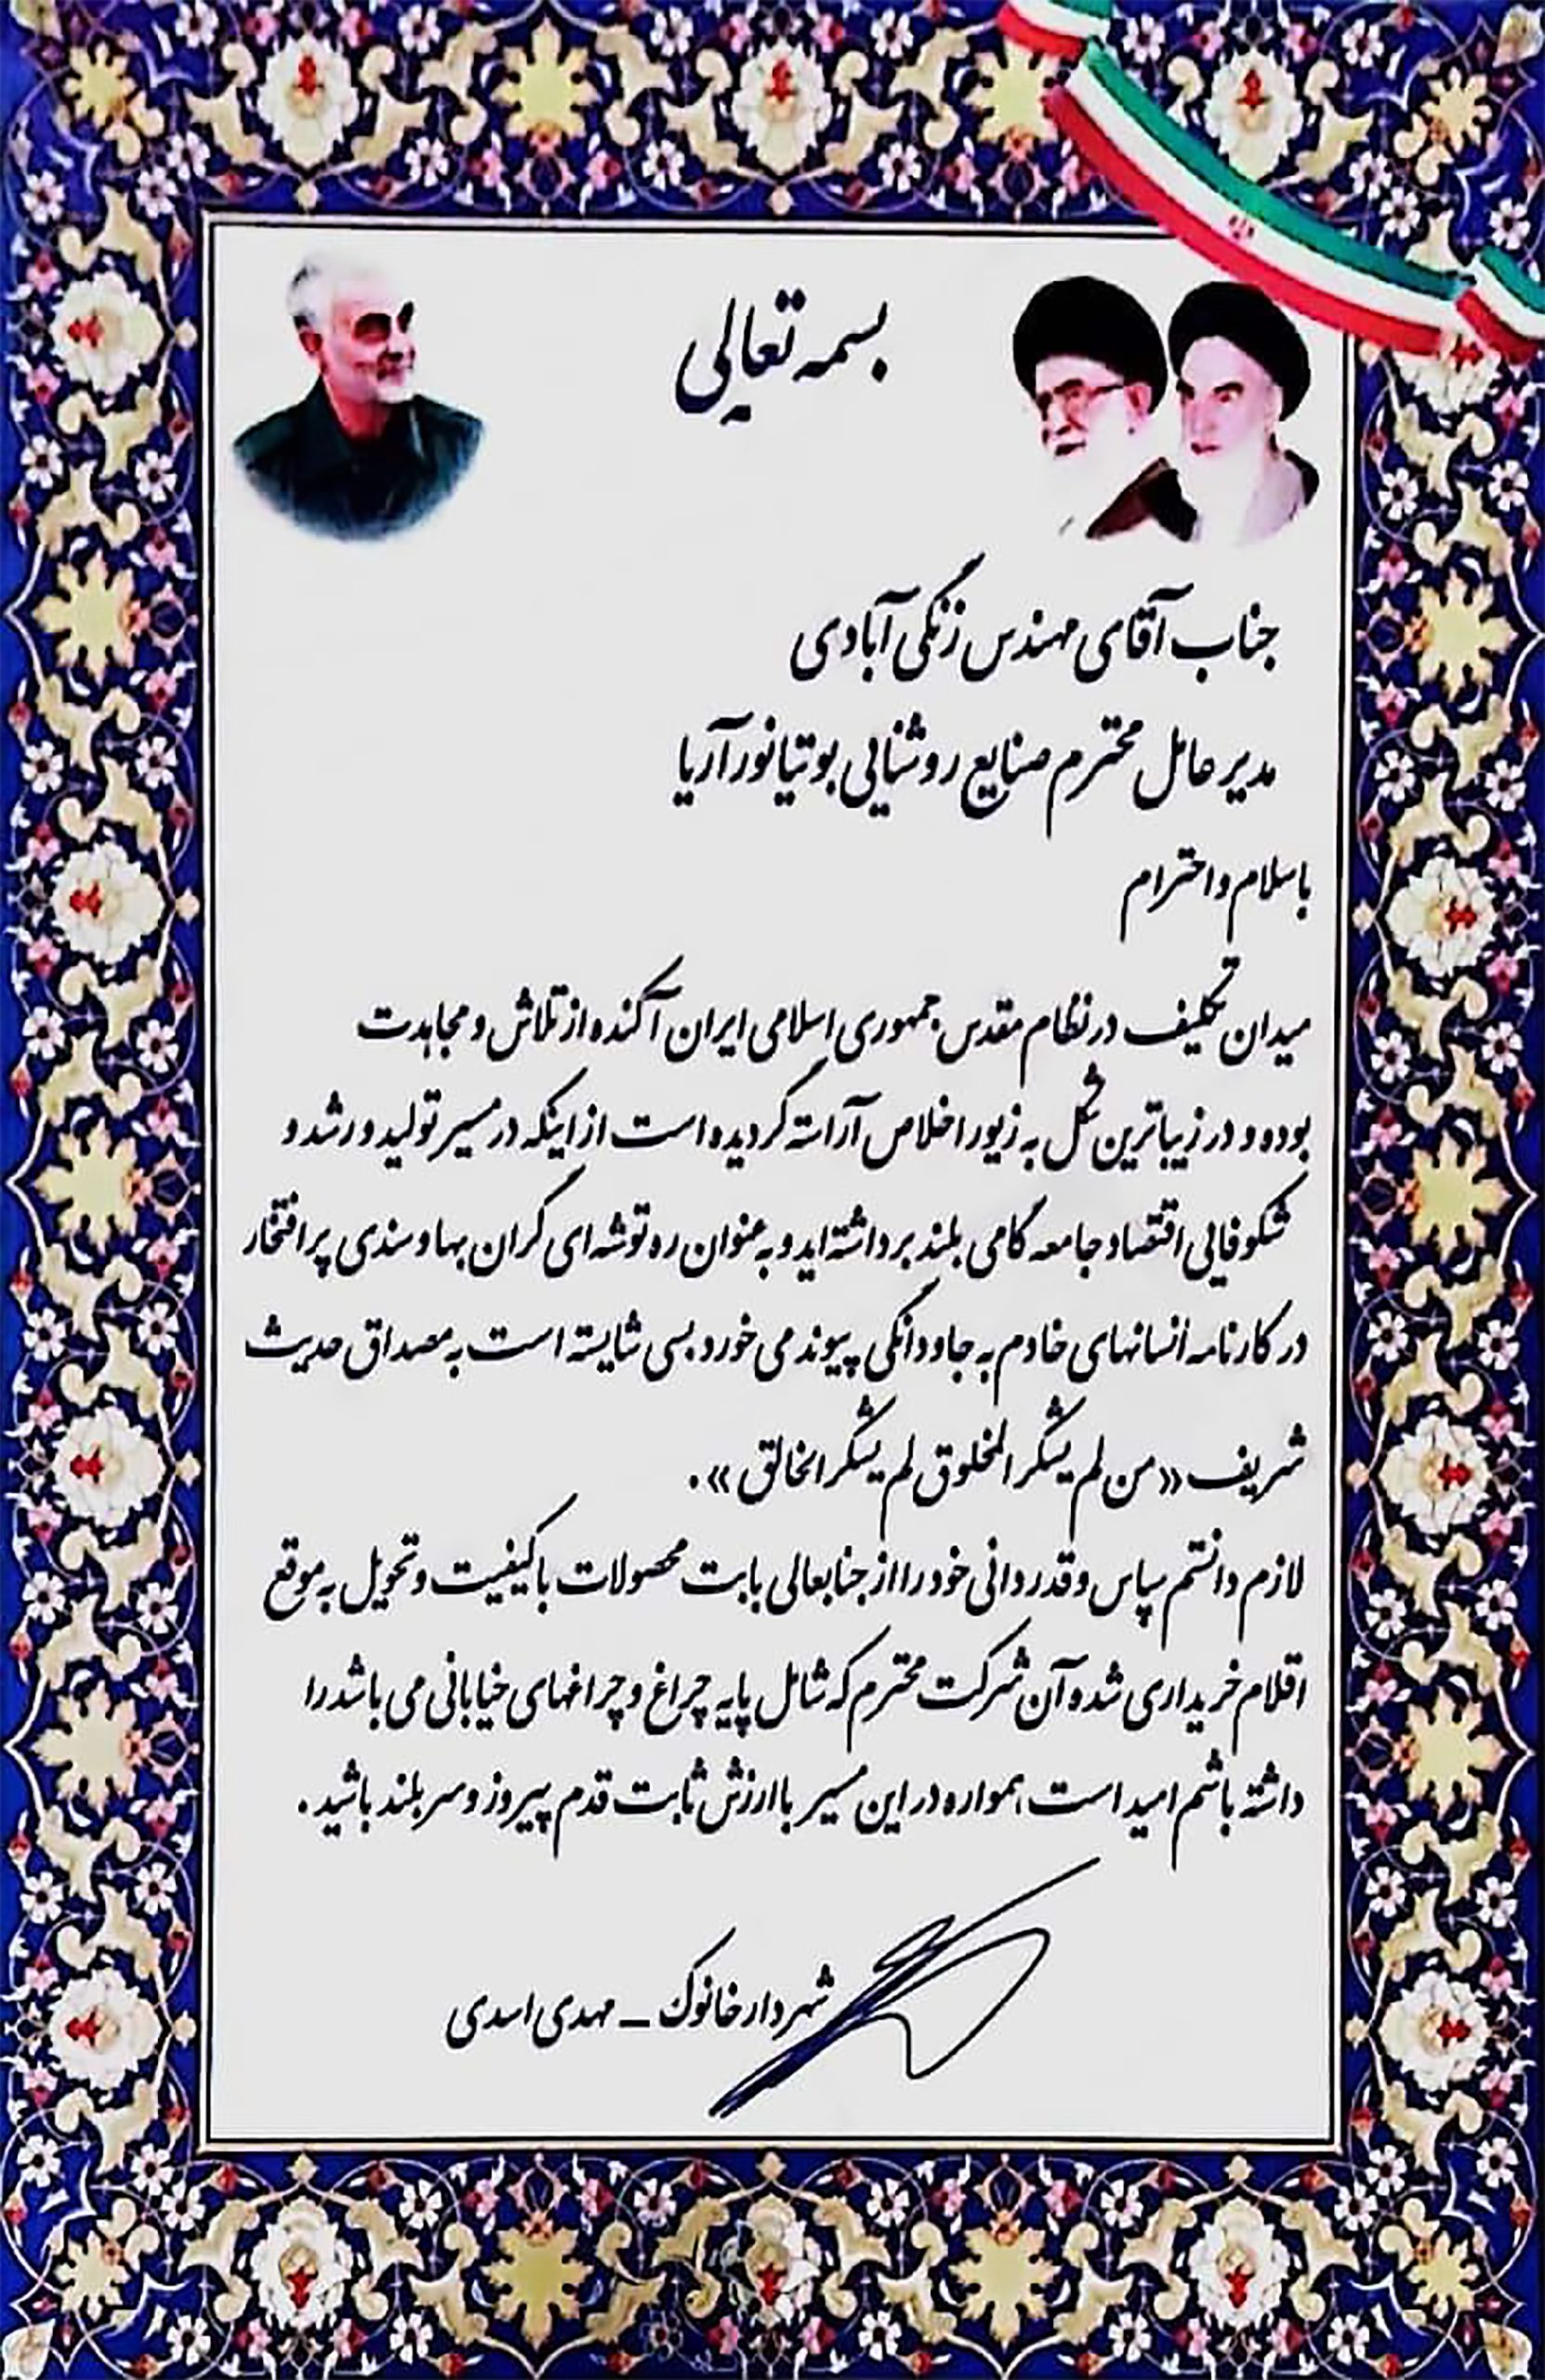 بسمه تعالی
جناب آقای مهندس زنگی آبادی
مدیر عامل محترم صنایع روشنایی بوتیا نور آریا
با سلام و احترام
میدان تکلیف در نظام مقدس جمهوری اسلامی ایران آکنده از تلاش و مجاهدت
بوده و در زیباترین شکل به زیور اخلاص آراسته گردیده است از اینکه در مسیر تولید و رشد و
شکوفایی اقتصاد جامعه گامی بلند برداشته اید و به عنوان ره توشه ای گران بها و سندی پر افتخار
در کارنامه انسانهای خادم به جاودانگی پیوند می خورد بسی شایسته است به مصداق حدیث
شریف «من لم یشکر المخلوق لم یشکر الخالق».
لازم دانستم سپاس و قدردانی خود را از جنابعالی بابت محصولات با کیفیت و تحویل به موقع
اقلام خریداری شده آن شرکت محترم که شامل پایه چراغ و چراغهای خیابانی می باشد را
داشته باشم امید است همواره در این مسیر با ارزش ثابت قدم پیروز و سربلند باشید.
شهردار خانوک - مهدی اسدی